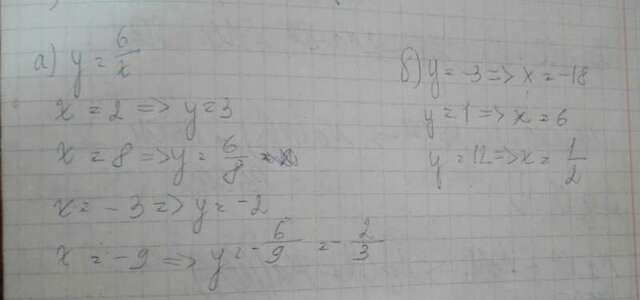 а) y = 6/x
x = 2 => y = 3
x = 8 => y = 6/8
x = -3 => y = -2
x = -9 => y = -6/9 = -2/3
б) y = -3 => x = -18
y = 1 => x = 6
y = 12 => x = 1/2